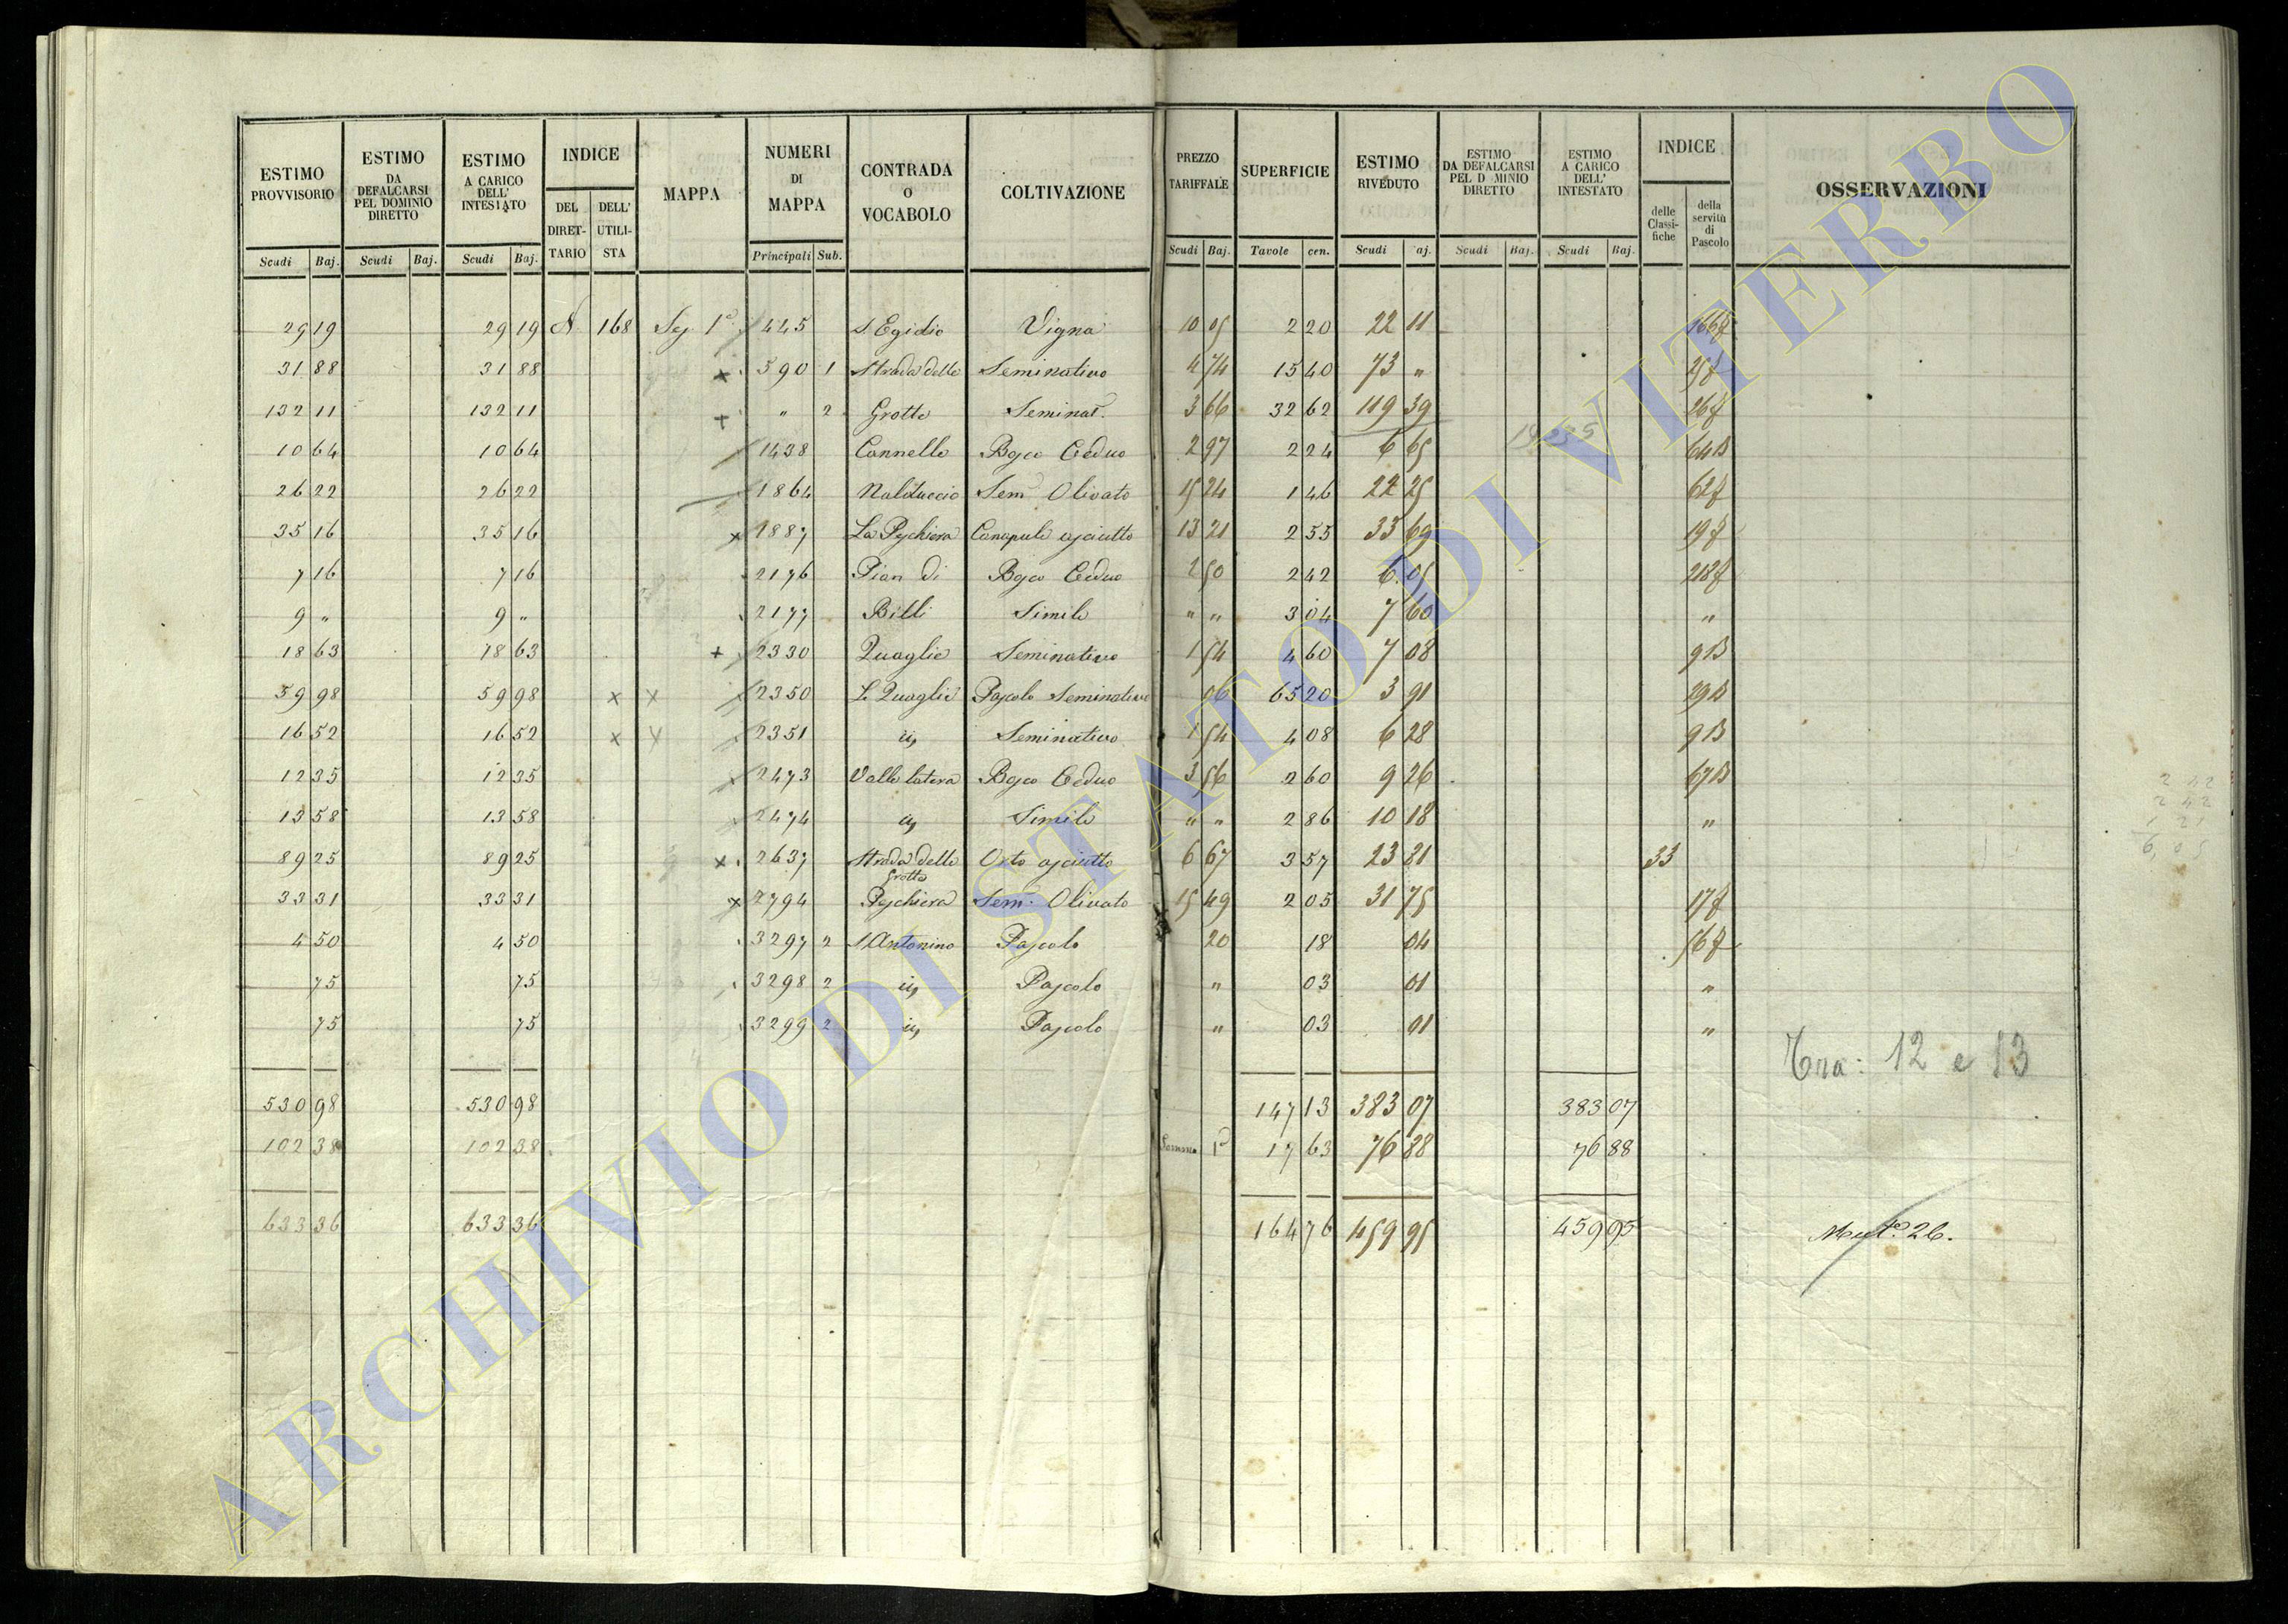 ESTIMO PROVVISORIO | ESTIMO DA DEFALCARSI PEL DOMINIO DIRETTO | ESTIMO A CARICO DELL' INTESTATO | INDICE | MAPPA | NUMERI DI MAPPA | CONTRADA O VOCABOLO | COLTIVAZIONE | PREZZO TARIFFALE | SUPERFICIE | ESTIMO RIVEDUTO | ESTIMO DA DEFALCARSI PEL D MINIO DIRETTO | ESTIMO A CARICO DELL' INTESTATO | INDICE | OSSERVAZIONI
DEL DIRET-TARIO | DELL' UTILI-STA | delle Classi-fiche | della servitù di Pascolo
Scudi | Baj. | Scudi | Baj. | Scudi | Baj. | Principali | Sub. | Scudi | Baj. | Tavole | cen. | Scudi | aj. | Scudi | Baj. | Scudi | Baj.
29 19 | 29 19 | 168 | Sez. 1ª | 445 | S. Egidio | Vigna | 10 05 | 2 20 | 22 11
31 88 | 31 88 | × | 590 | 1 | Strada delle | Seminativo | 4 74 | 15 40 | 73 "
132 11 | 132 11 | + | " | 2 | Grotte | Seminat. | 3 66 | 32 62 | 119 39 | 26
10 64 | 10 64 | 1438 | Cannelle | Bosco Ceduo | 2 97 | 2 24 | 6 65 | 192 35 | 64 B
26 22 | 26 22 | 1864 | Sem. Olivato | 15 24 | 1 46 | 22 25 | 62
35 16 | 35 16 | × | 1887 | La Peschiera | Canapule asciutto | 13 21 | 2 55 | 33 69 | 19
7 16 | 7 16 | 2176 | Pian di | Bosco Ceduo | 2 50 | 2 42 | 6 05
9 " | 9 " | 2177 | Billi | Simile | " " | 3 04 | 7 60 | "
18 63 | 18 63 | + | 2330 | Quaglie | Seminativo | 1 54 | 4 60 | 7 08 | 9 B
59 98 | 59 98 | × × | 2350 | Le Quaglie | Pascolo Seminativo | 06 | 65 20 | 3 91 | 29 B
16 52 | 16 52 | × × | 2351 | id. | Seminativo | 1 54 | 4 08 | 6 28 | 9 B
12 35 | 12 35 | 2473 | Valle latera | Bosco Ceduo | 3 56 | 2 60 | 9 26 | 67 B
13 58 | 13 58 | 2474 | id. | Simile | " " | 2 86 | 10 18 | "
89 25 | 89 25 | × | 2637 | Strada delle Grotte | Orto asciutto | 6 67 | 3 57 | 23 81 | 33
33 31 | 33 31 | × | 2794 | Peschiera | Sem. Olivato | 15 49 | 2 05 | 31 75 | 17
4 50 | 4 50 | 3297 | 2 | S. Antonino | Pascolo | 20 | 18 | 04 | 56
75 | 75 | 3298 | 2 | id. | Pascolo | " | 03 | 01 | "
75 | 75 | 3299 | 2 | id. | Pascolo | " | 03 | 01 | "
Tra: 12 e 13
530 98 | 530 98 | 147 13 | 383 07 | 383 07
102 38 | 102 38 | 17 63 | 76 88 | 76 88
633 36 | 633 36 | 164 76 | 459 95 | 459 95 | Mut. 26.
2 42
2 42
1 21
6,05
ARCHIVIO DI STATO DI VITERBO